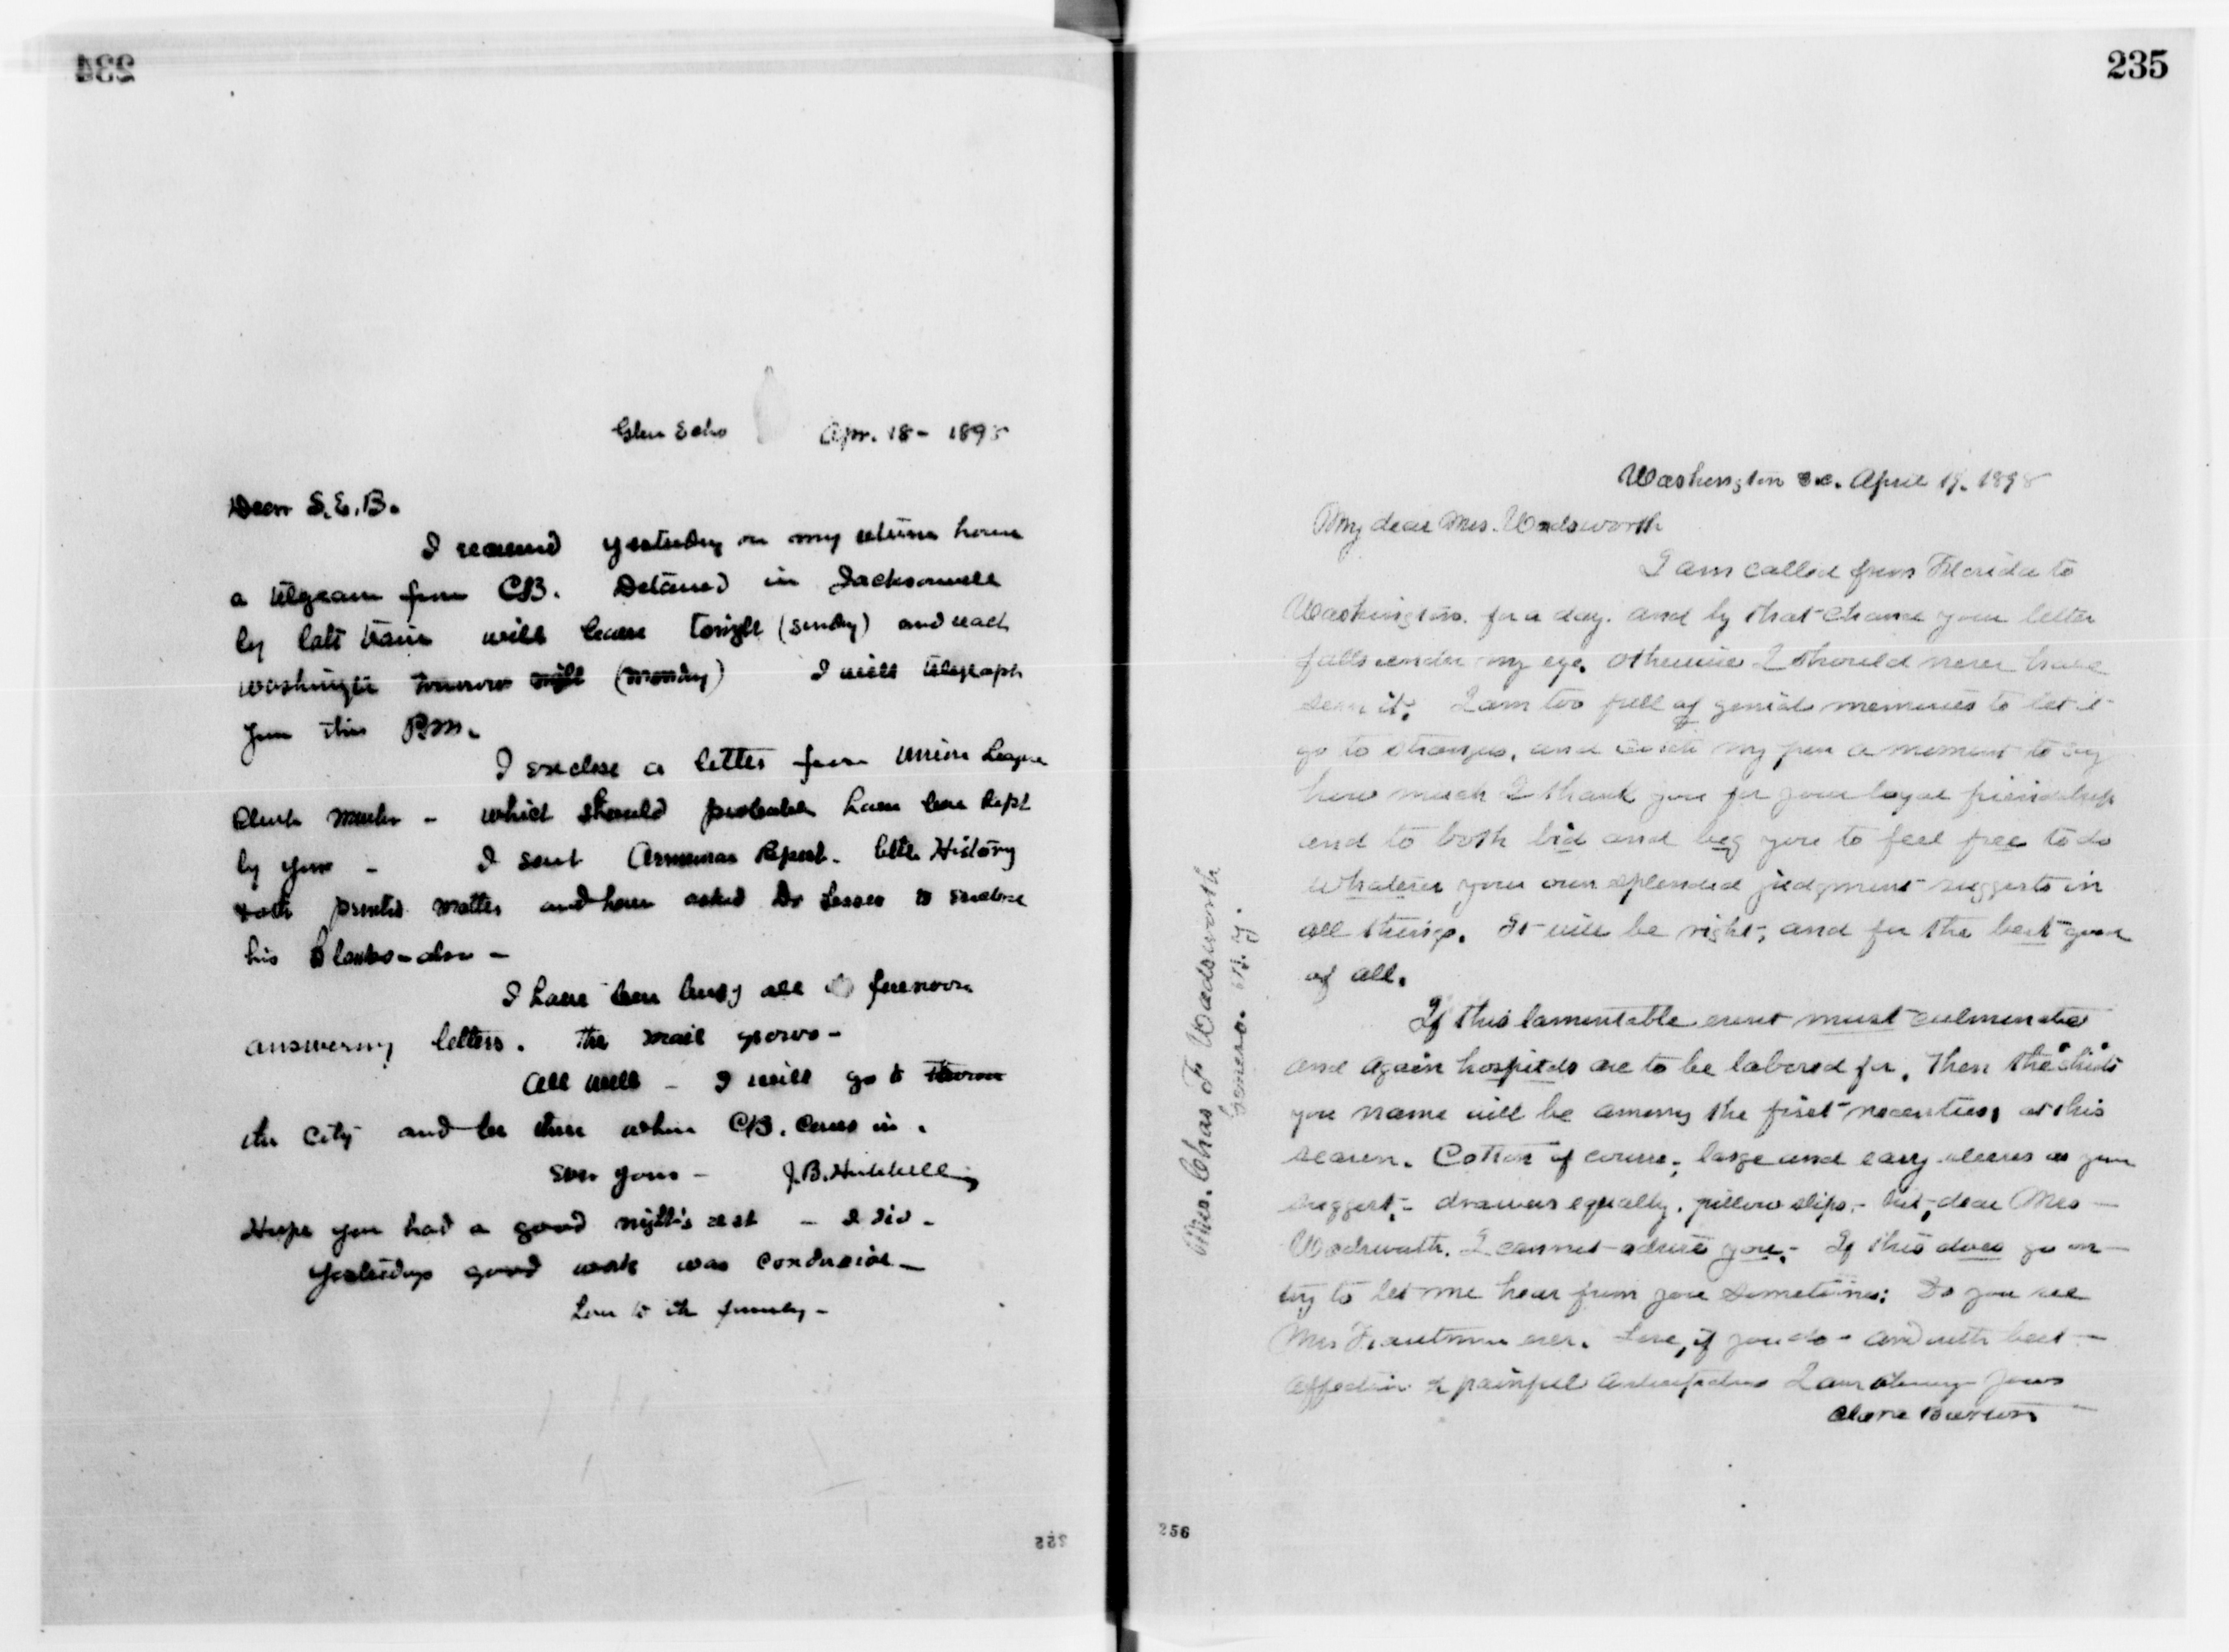 234
Glen Echo Apr. 18 - 1898
Dear S.E.B.
I received yesterday on my return home
a telegram from CB. Detained in Jacksonville
by late train will leave tonight (Sunday) and reach
Washington tomorrow night (Monday) I will telegraph
you this P.M.
I enclose a letter from Union League
Club - which should probably have been kept
by you - I sent Armenian Report. little History
printed matter and have asked Dr Lesser to enclose
his Blanks - also -
I have been busy all forenoon
answering letters. The mail grows -
All well - I will go to
the city and be there when CB. comes in.
Ever yours - J.B. Hubbell
Hope you had a good night's rest - I did -
Yesterdays good work was conducive -
Love to the family -
255
235
Washington D.C. April 19. 1898
My dear Mrs. Wadsworth
I am called from Florida to
Washington. for a day. and by that chance your letter
falls under my eye. Otherwise I should never have
seen it. I am too full of genial memories to let it
go to strangers, and my pen a moment to say
how much I thank you for your loyal friendship
and to both bid and beg you to feel free to do
whatever your own splendid judgment suggests in
all things. It will be right, and for the best good
of all.
If this lamentable event must culminate
and again hospitals are to be labored for. Then the "shirts"
you name will be among the first necessities, at this
season. Cotton of course, large and easy sleeves as you
suggest, - drawers equally. pillow slips, - but, dear Mrs -
Wadsworth. I cannot advise you. - If this does go on -
try to let me hear from you sometimes: Do you see
Mrs ever. Love, if you do - and with best -
affection & painful anticipations I am always yours
Clara Barton
Mrs. Chas F Wadsworth
Geneseo. N.Y.
256